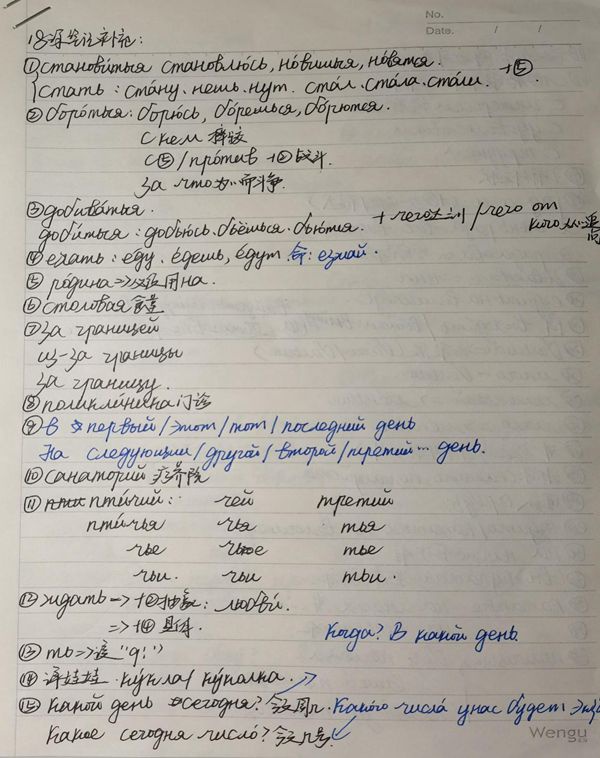 No.
Date. / /
18课笔记补充:
①становиться становлюсь, но́вишься, но́вятся.
стать : ста́ну. нешь. нут. ста́л. ста́ла. ста́ли. +⑤.
②боро́ться: борю́сь, бо́решься, бо́рются.
с кем 摔跤
с⑤/про́тив +② 战斗
за что 为..而斗争.
③добива́ться.
доби́ться: добью́сь. бьёшься. бью́тся. + чего达到 / чего от
кого
④ехать: е́ду. е́дешь, е́дут 命: езжай.
⑤ро́дина => 只用на.
⑥столовая 食堂
⑦за границей
из-за границы
за границу.
⑧поликли́ника门诊
⑨ в первый/этот/тот/последний день
На следующий/другой/второй/третий... день.
⑩санаторий 疗养院
⑪ пти́чий: чей третий
пти́чья чья тья
чье чье тье
чьи. чьи тьи.
⑫ждать —> +②抽象: любви.
=> +④ 具体. Когда? В какой день.
⑬ть => 读"qi"
⑭洋娃娃. ку́кла/ку́колка.
⑮какой день сегодня? 今天周几. Како́го числа́ у нас бу́дет экз
Какое сегодня число? 今天几号.
Wengu